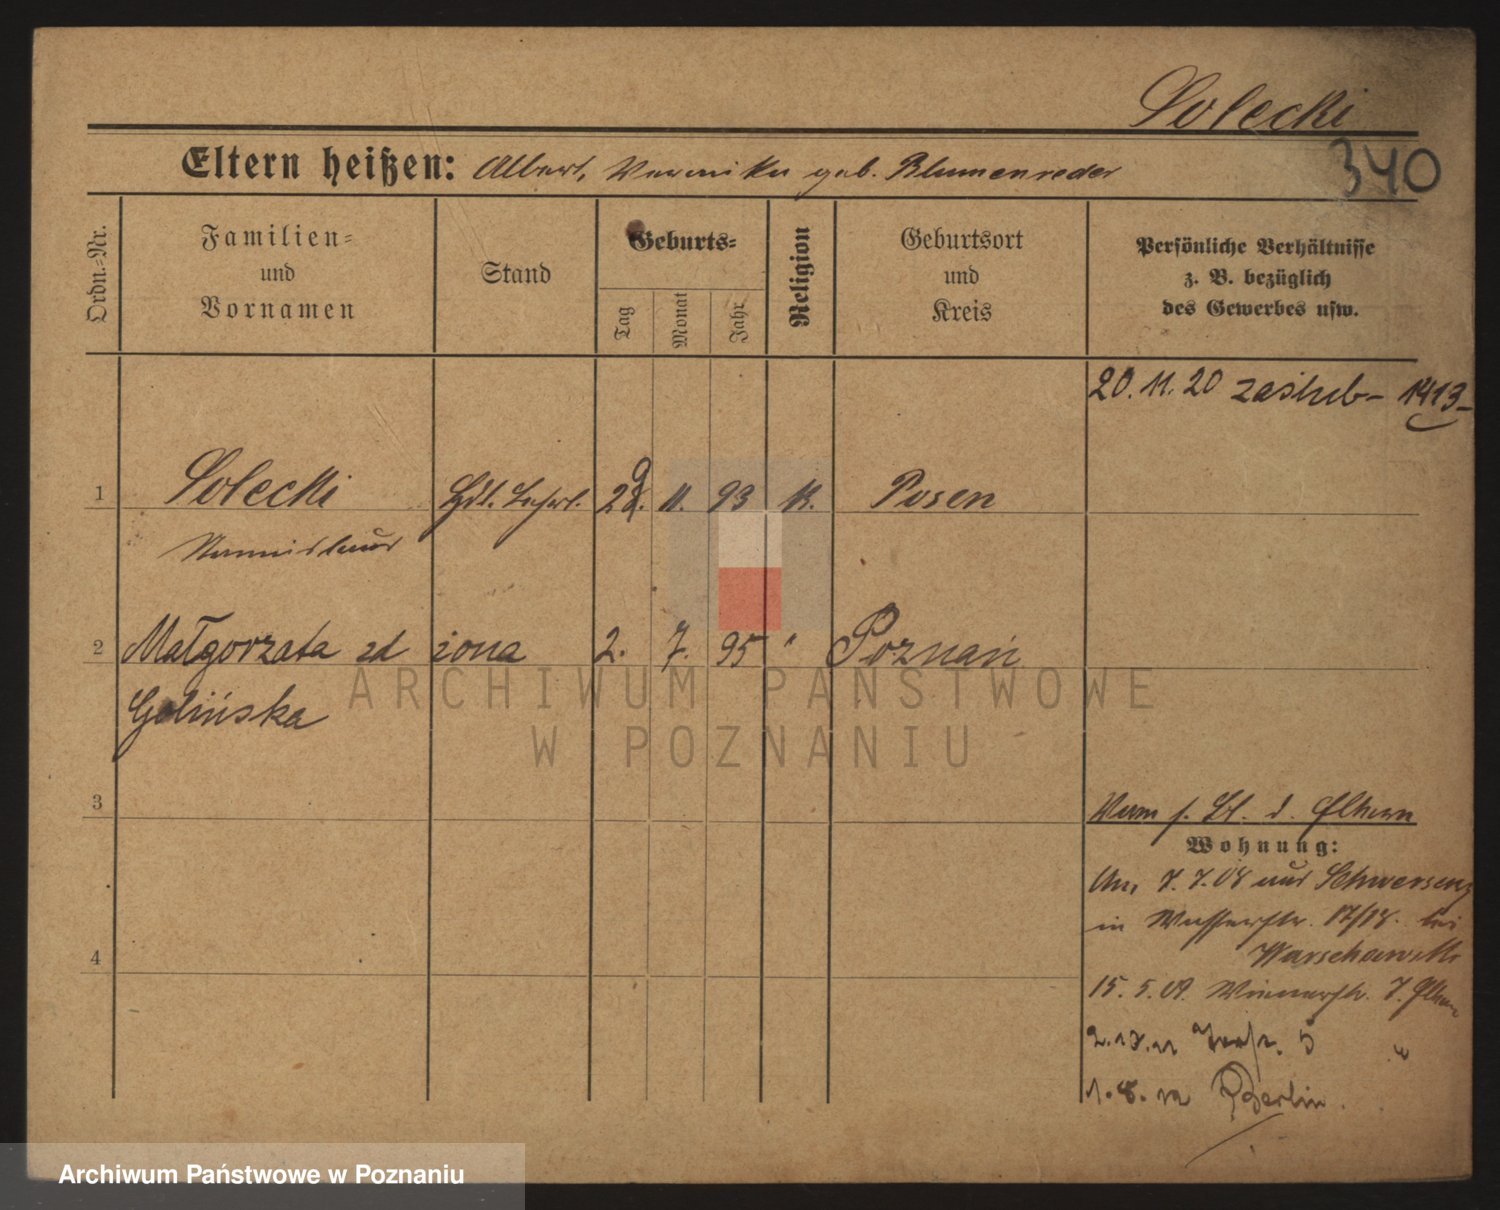 Solecki
340
Eltern heißen: Albert, Veronika geb. Blumenreder
Ordn.-Nr.
Familien-
und
Vornamen
Stand
Geburts-
Tag
Monat
Jahr
Religion
Geburtsort
und
Kreis
Persönliche Verhältnisse
z. B. bezüglich
des Gewerbes usw.
20.11.20 zaślub- 1413-
1 Solecki Hdl. Lehrl. 29. 11. 93 k. Posen
Stanislaus
2 Małgorzata zd żona 2. 7. 95 " Poznań
Golińska
3
Verm s. Bl. d. Eltern
Wohnung:
Am 7.7.08 aus Schwersenz
in Wasserstr. 17/18. bei
Warschawski
4
15.5.09. Wienerstr. 7. Eltern
5 "
1.8. Berlin.
ARCHIWUM PAŃSTWOWE
W POZNANIU
Archiwum Państwowe w Poznaniu